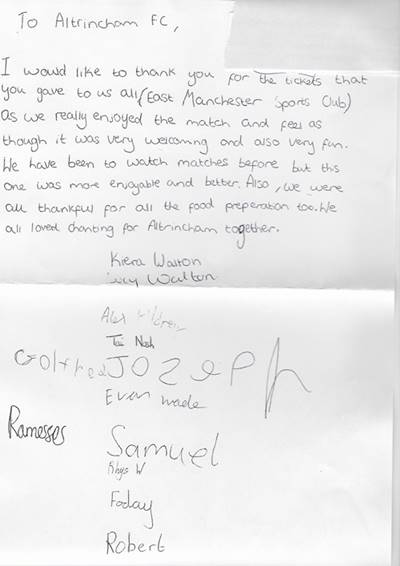 To Altrincham FC,
I would like to thank you for the tickets that
you gave to us all (East Manchester Sports Club)
As we really enjoyed the match and feel as
though it was very welcoming and also very fun.
We have been to watch matches before but this
one was more enjoyable and better. Also, we were
all thankful for all the food preperation too. We
all loved chanting for Altrincham together.
Kiera Walton
Walton
Alex
Tai Nash
JOZEPH
Evan Wade
Ramesses
Samuel
Rhys W
Foday
Robert